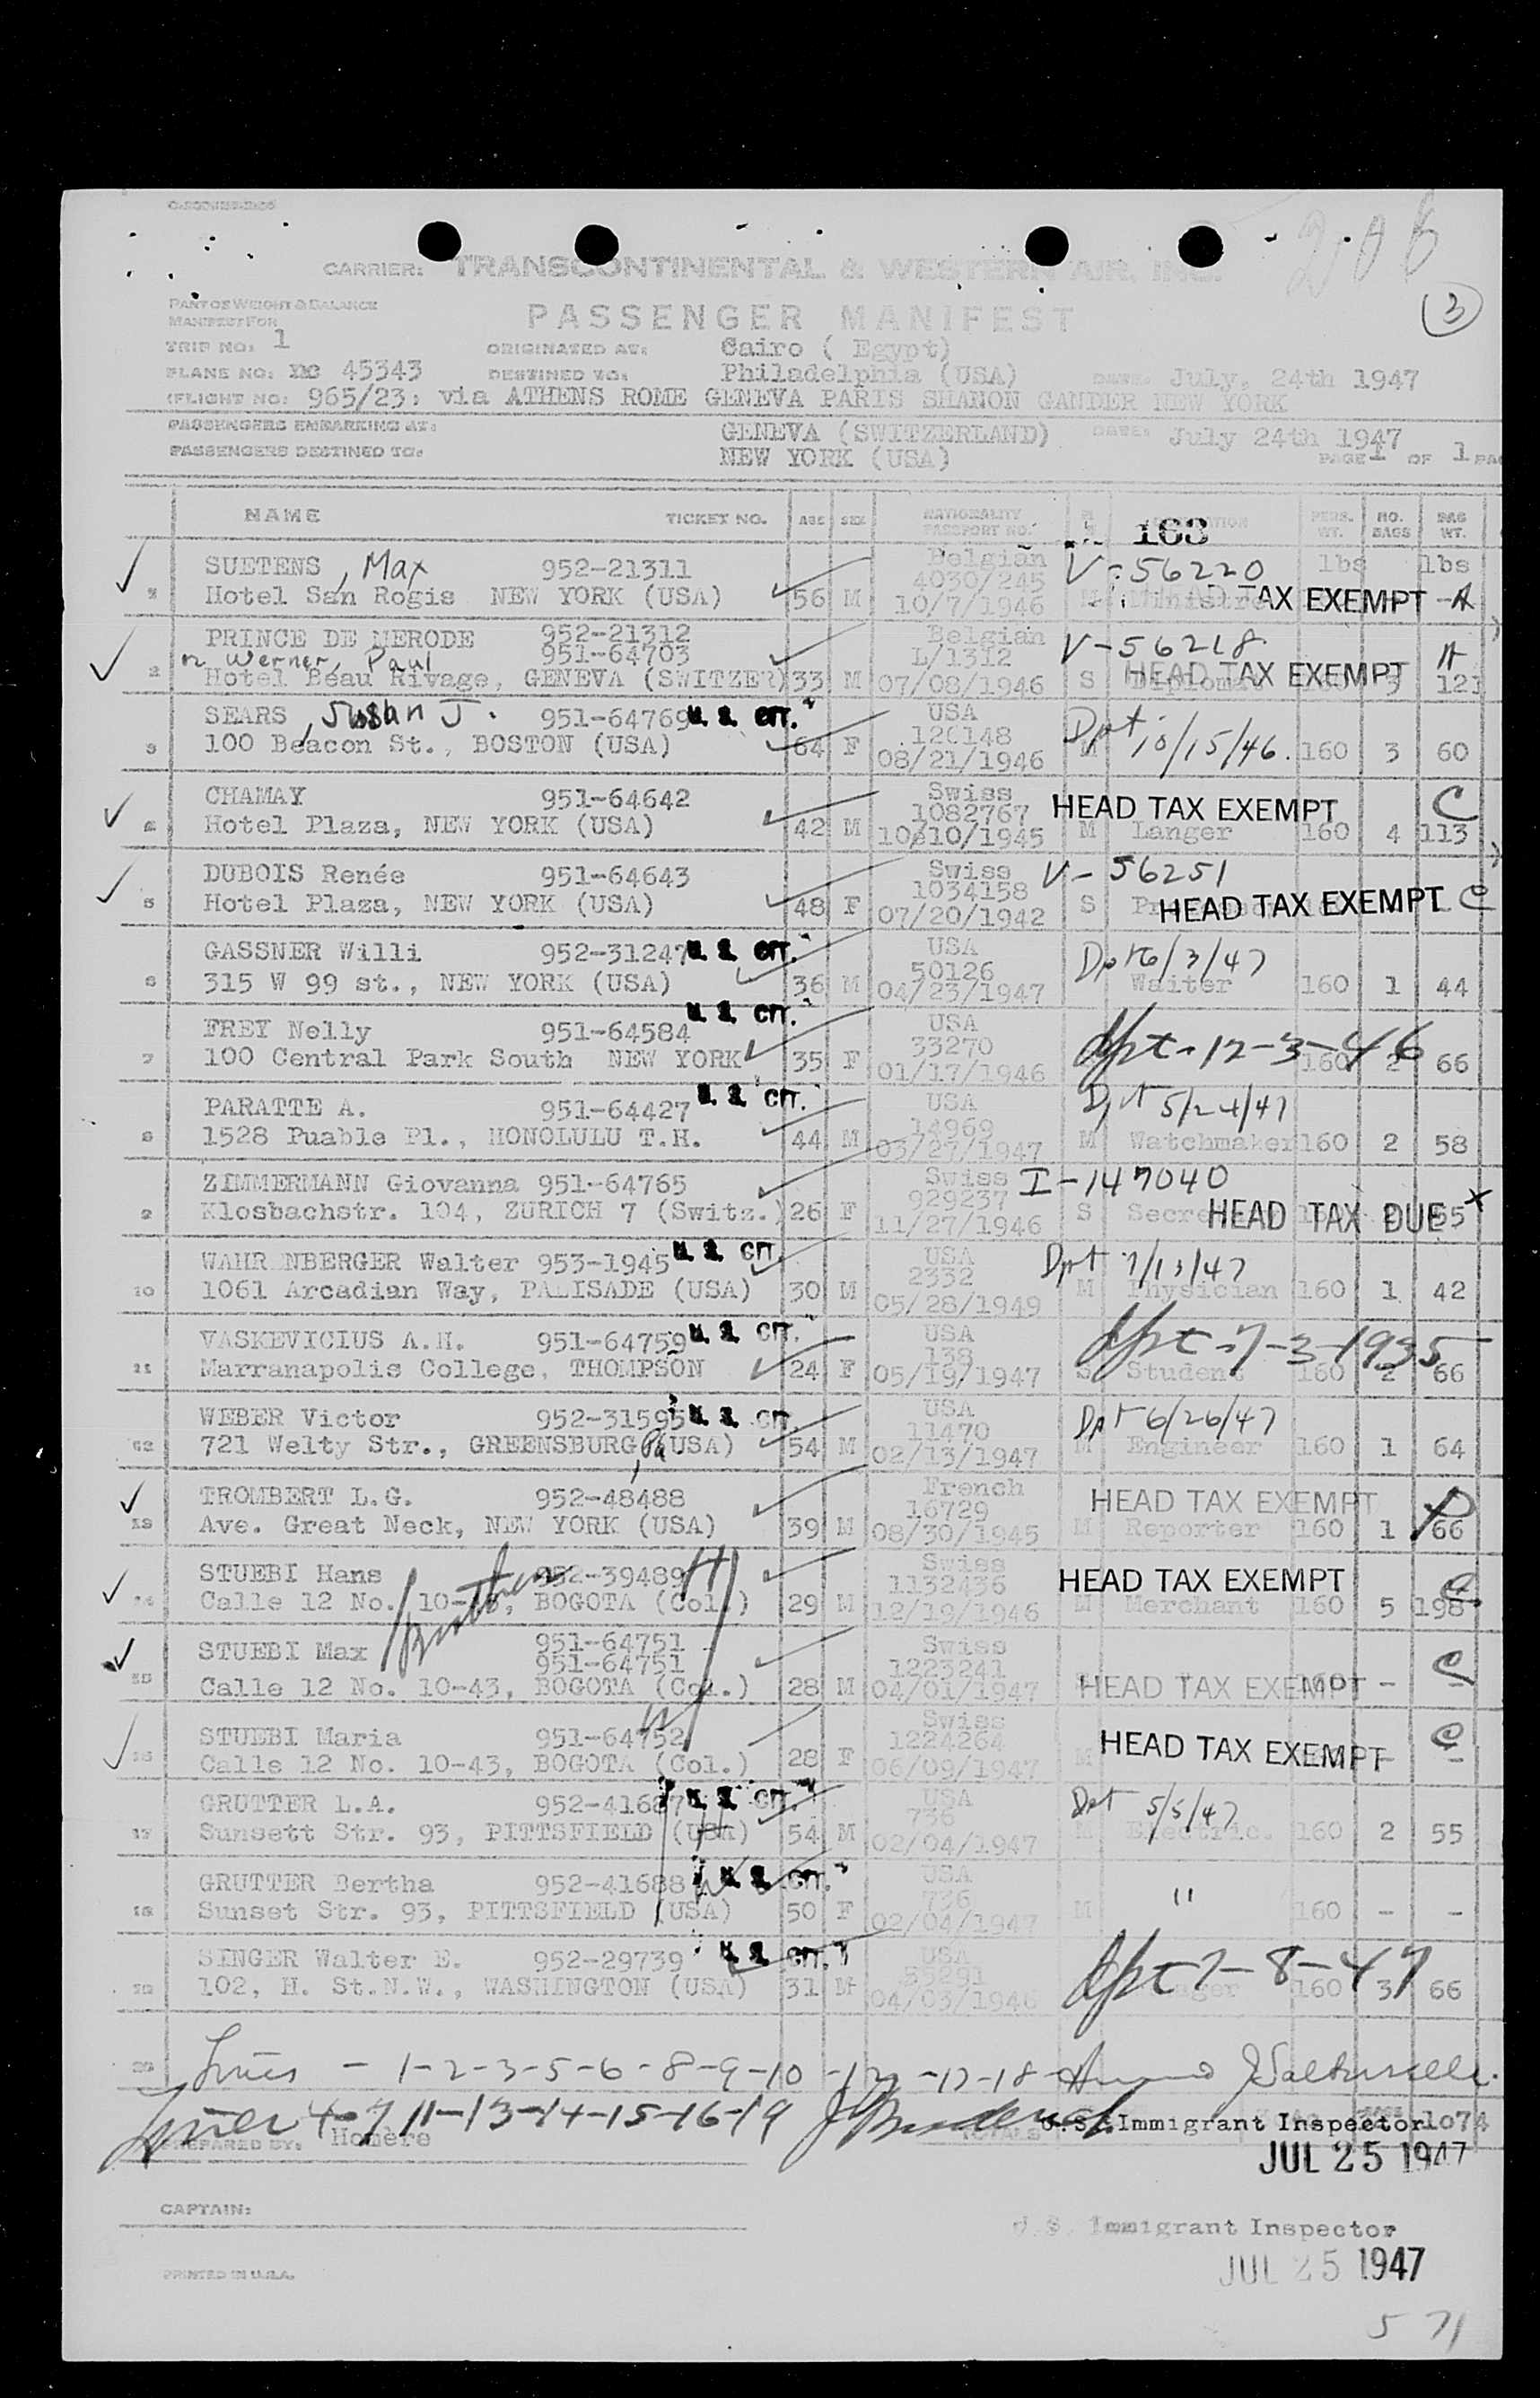 206
CARRIER: TRANSCONTINENTAL & WESTERN AIR, INC.
3
PART OF WEIGHT & BALANCE
MANIFEST FOR
PASSENGER MANIFEST
TRIP NO: 1
ORIGINATED AT: Cairo ( Egypt)
PLANE NO: 45343 DESTINED TO: Philadelphia (USA) DATE: July, 24th 1947
(FLIGHT NO: 965/23: via ATHENS ROME GENEVA PARIS SHANON GANDER NEW YORK
PASSENGERS EMBARKING AT: GENEVA (SWITZERLAND) DATE: July 24th 1947
PASSENGERS DESTINED TO: NEW YORK (USA) PAGE 1 OF 1 PAG
NAME TICKET NO. AGE SEX NATIONALITY PASSPORT NO. 163 PERS. WT. NO. BAGS BAG WT.
SUETENS, Max 952-21311 Belgian V-56220 lbs lbs
4030/245
Hotel San Rogis NEW YORK (USA) 56 M 10/7/1946 Ministre TAX EXEMPT -A
PRINCE DE MERODE 952-21312 Belgian V-56218
Werner, Paul 951-64703 L/1312 HEAD TAX EXEMPT A
2 Hotel Beau Rivage, GENEVA (SWITZER) 33 M 07/08/1946 S Diplomat 3 121
SEARS, Susan J. 951-64769 U. S. CIT. USA Dpt 10/15/46.
120148
3 100 Beacon St., BOSTON (USA) 64 F 08/21/1946 M 160 3 60
CHAMAY 951-64642 Swiss HEAD TAX EXEMPT C
1082767
Hotel Plaza, NEW YORK (USA) 42 M 10/10/1945 M Langer 160 4 113
DUBOIS Renée 951-64643 Swiss V-56251
1034158
5 Hotel Plaza, NEW YORK (USA) 48 F 07/20/1942 S HEAD TAX EXEMPT C
GASSNER Willi 952-31247 U. S. CIT. USA Dpt 6/3/47
50126
6 315 W 99 st., NEW YORK (USA) 36 M 04/23/1947 Waiter 160 1 44
FREY Nelly 951-64584 U. S. CIT. USA dpt-12-3-46
33270
7 100 Central Park South NEW YORK 35 F 01/17/1946 160 2 66
PARATTE A. 951-64427 U. S. CIT. USA Dpt 5/24/47
14969
8 1528 Puable Pl., HONOLULU T.H. 44 M 03/27/1947 M Watchmaker 160 2 58
ZIMMERMANN Giovanna 951-64765 Swiss I-147040
929237
9 Klosbachstr. 104, ZURICH 7 (Switz.) 26 F 11/27/1946 S HEAD TAX DUE 55 x
WAHR NBERGER Walter 953-1945 U. S. CIT. USA Dpt 7/13/47
2332
10 1061 Arcadian Way, PALISADE (USA) 30 M 05/28/1949 M Physician 160 1 42
VASKEVICIUS A.H. 951-64759 U. S. CIT. USA dpt-7-3-1935
138
11 Marranapolis College, THOMPSON 24 F 05/19/1947 S Student 160 2 66
WEBER Victor 952-31595 U. S. CIT. USA Dpt 6/26/47
11470
12 721 Welty Str., GREENSBURG, Pa (USA) 54 M 02/13/1947 M Engineer 160 1 64
TROMBERT L.G. 952-48488 French HEAD TAX EXEMPT
16729
13 Ave. Great Neck, NEW YORK (USA) 39 M 08/30/1945 M Reporter 160 1 66
STUEBI Hans 952-39489 Swiss HEAD TAX EXEMPT C
Brother 1132436
14 Calle 12 No. 10-43, BOGOTA (Col.) 29 M 12/19/1946 M Merchant 160 5 198
STUEBI Max 951-64751 Swiss C
951-64751 1223241
15 Calle 12 No. 10-43, BOGOTA (Col.) 28 M 04/01/1947 HEAD TAX EXEMPT - -
STUEBI Maria 951-64752 Swiss HEAD TAX EXEMPT C
W 1224264
16 Calle 12 No. 10-43, BOGOTA (Col.) 28 F 06/09/1947 M - -
GRUTTER L.A. 952-41687 U. S. CIT. USA Dpt 5/5/47
H 736
17 Sunsett Str. 93, PITTSFIELD (USA) 54 M 02/04/1947 M Electric. 160 2 55
GRUTTER Bertha 952-41688 W U. S. CIT. USA "
736
18 Sunset Str. 93, PITTSFIELD (USA) 50 F 02/04/1947 M 160 - -
SINGER Walter E. 952-29739 U. S. CIT. USA dpt 7-8-47
19 102, H. St.N.W., WASHINGTON (USA) 31 M 04/03/1946 160 3 66
20 Lines - 1-2-3-5-6-8-9-10-12-17-18
Lines 4-7 11-13-14-15-16-19
U.S. Immigrant Inspector 1074
PREPARED BY: Homère TOTALS
JUL 25 1947
CAPTAIN:
U.S. Immigrant Inspector
JUL 25 1947
PRINTED IN U.S.A.
5 71